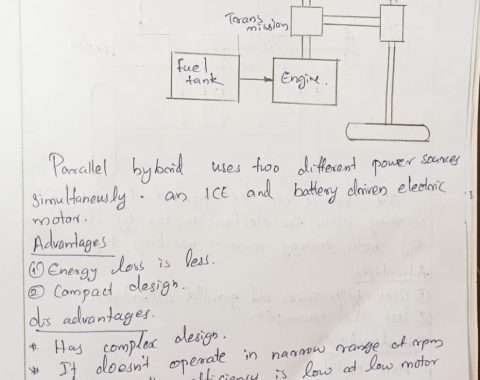 Trans
mission
Fuel
tank
Engine.
Parallel hybrid uses two different power sources
simultaneusly. an ICE and battery driven electric
motor.
Advantages
① Energy loss is less.
② Compact design.
dis advantages.
* Has complex design.
* It doesn't operate in narrow range of rpm
efficiency is low at low motor